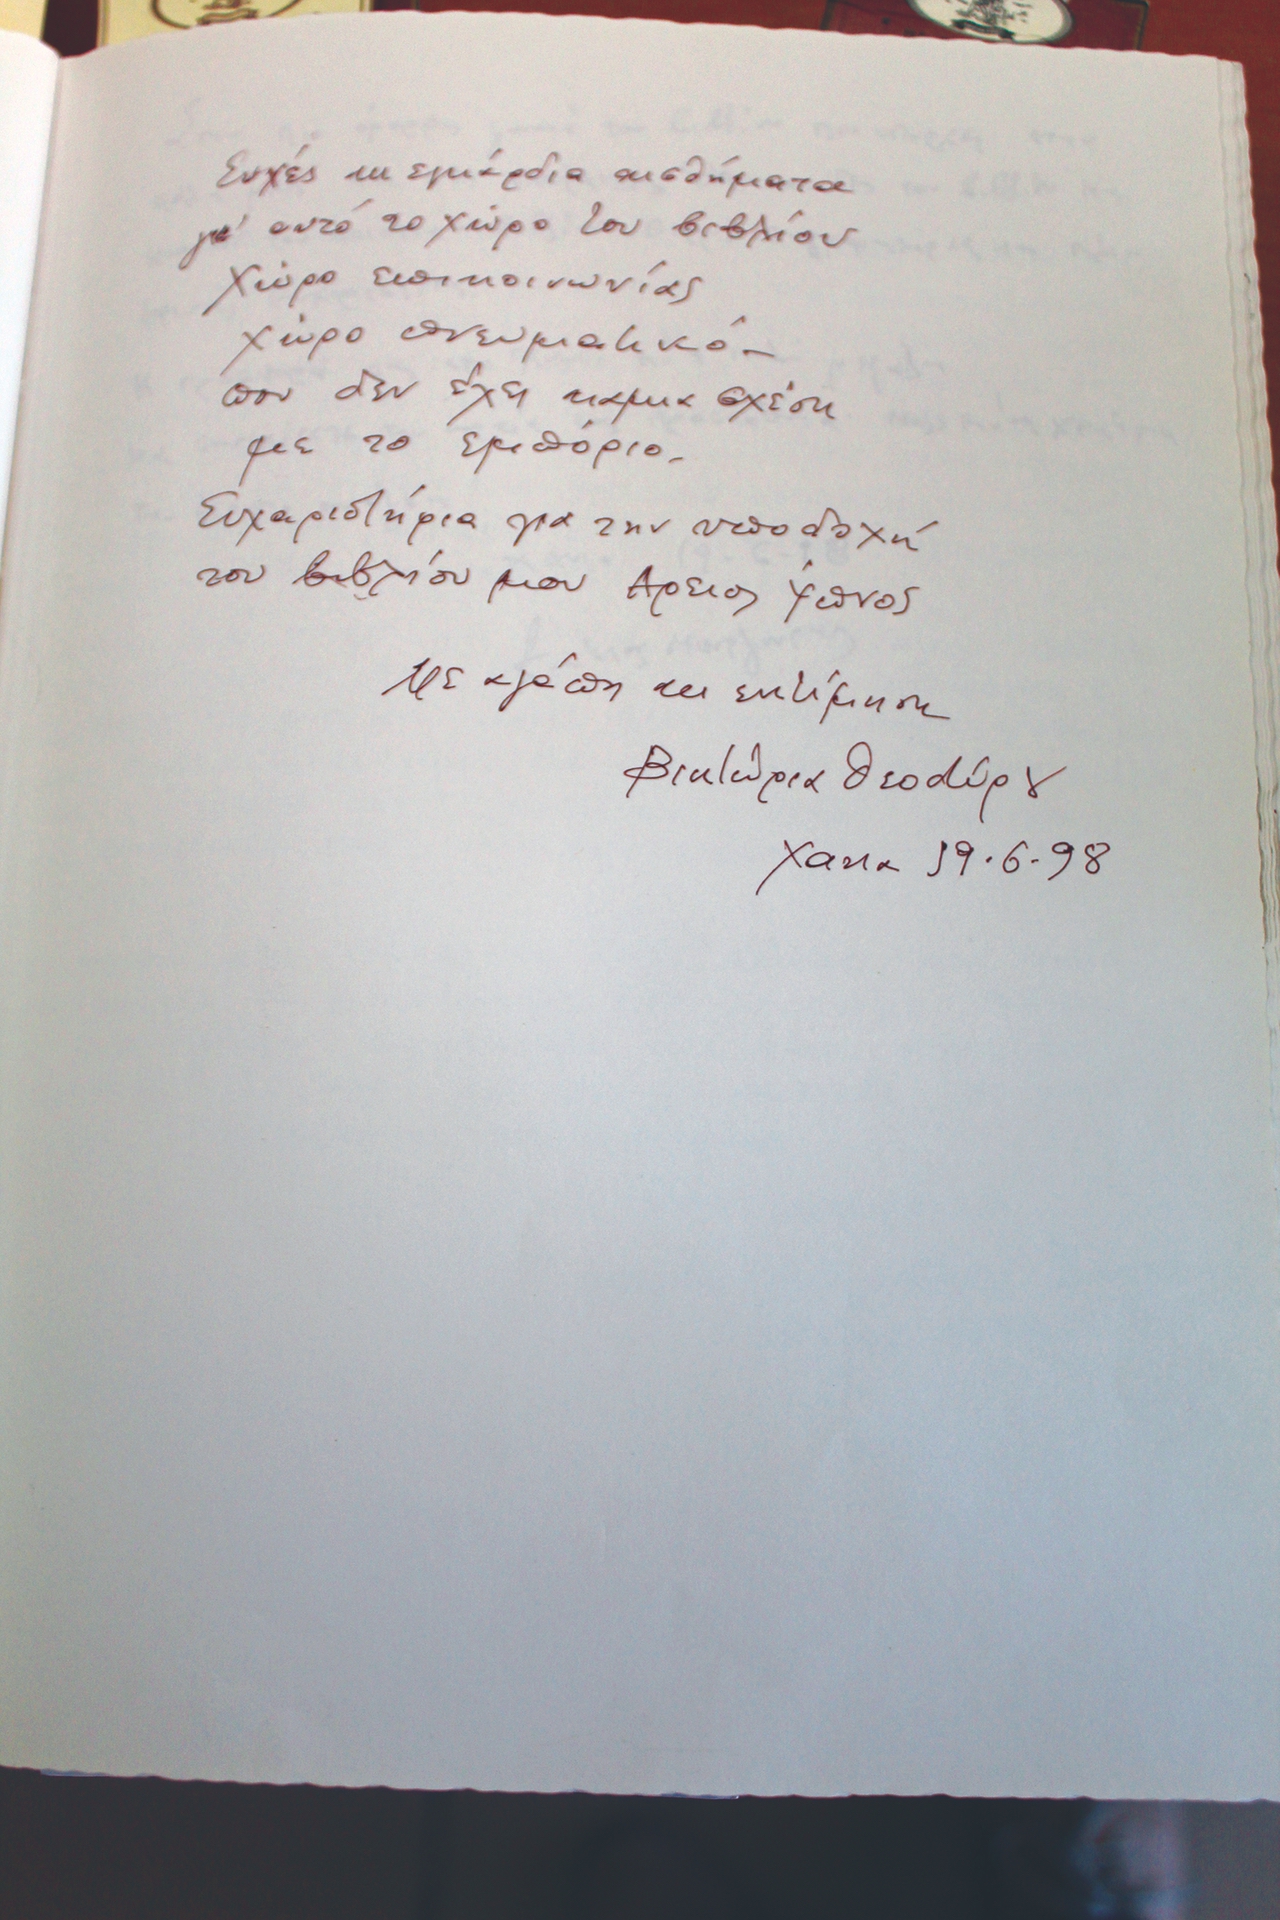 Ευχές και εγκάρδια αισθήματα
γι' αυτό το χώρο του βιβλίου
χώρο επικοινωνίας
χώρο πνευματικό –
που δεν έχει καμια σχέση
με το εμπόριο.
Ευχαριστήρια για την υποδοχή
του βιβλίου μου Άρειος Ύπνος
Με αγάπη και εκτίμηση
Βικτώρια Θεοδώρου
Χανια 19.6.98